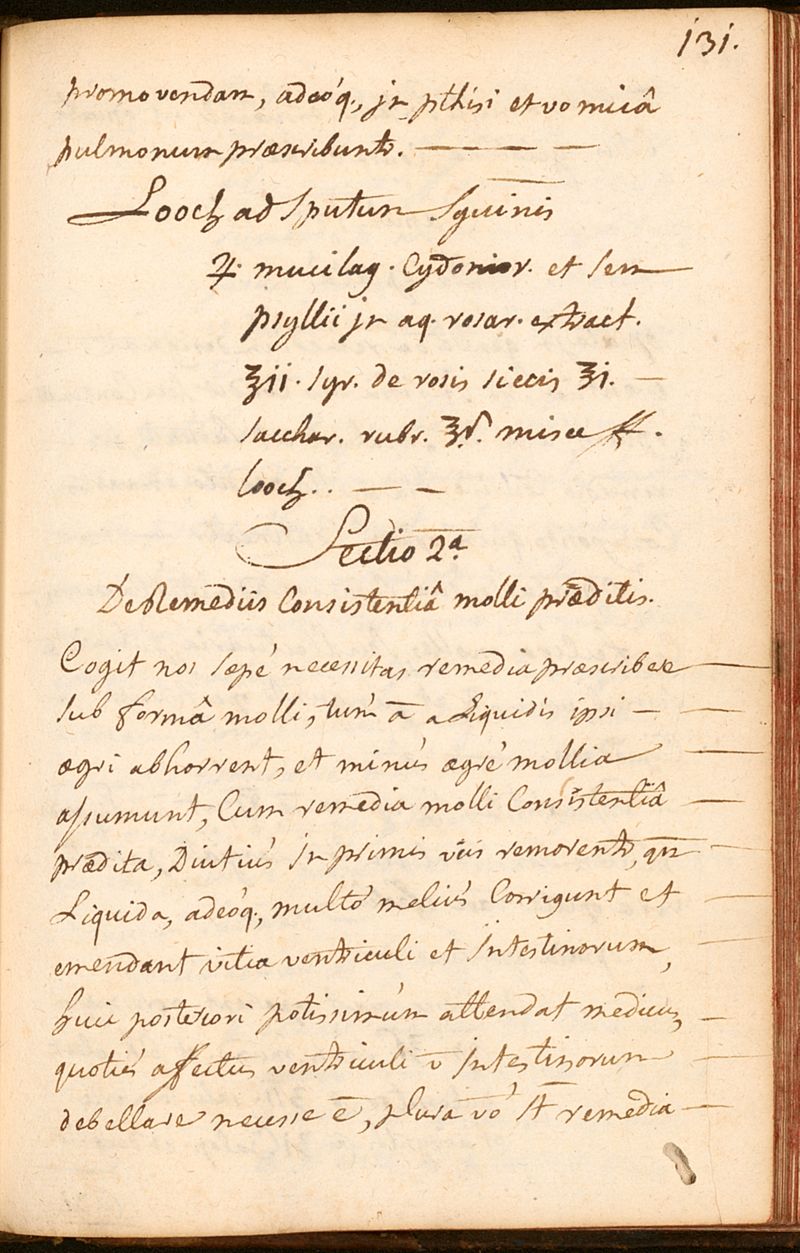 131.
promovendam, adeóq., in pthisi et vomicâ
pulmonum præscribuntr.
Looch ad Sputum Sguinis
♃. mucilag. Cydonior. et sem
psyllii in aq. rosar. extract.
ʒii. syr. de rosis siccis ʒi.
sacchar. rubr. ʒß. misce ff.
looch..
Sectio 2ª
De Remediis Consistentiâ molli præditis.
Cogit nos sæpé necessitas remedia præscribere
sub formâ molli, tum a Liquidis ipsi
ægri abhorrent, et minús ægré mollia
assumunt, Cum remedia molli Consistentiâ
prædita, Diutiús in primis viis remorentr, qm
Liquida, adeóq., multó meliús Corrigunt et
emendant vitia ventriculi et Intestinorum,
huic posteriori potissimúm attendat medicus,
quotiés affectus ventriculi v̄ Intestinorum
debellare necesse ē, plura vó st̄ remedia